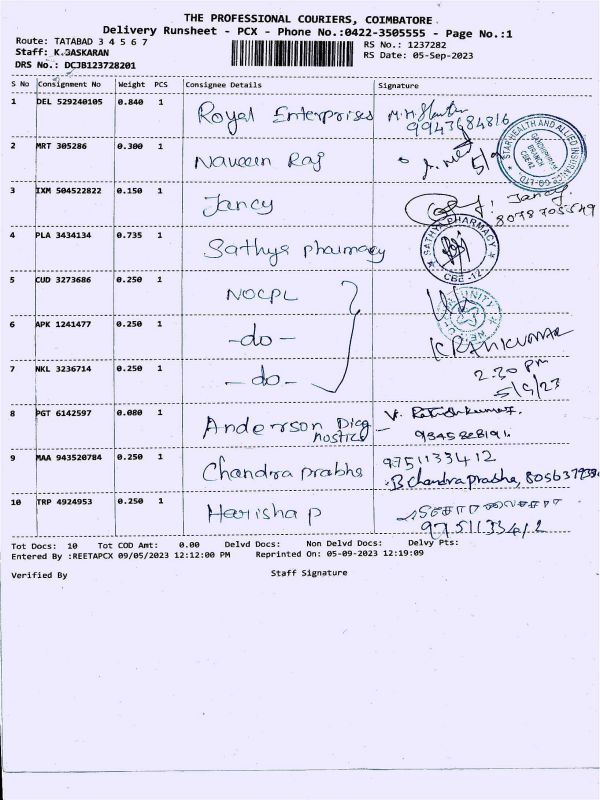 THE PROFESSIONAL COURIERS, COIMBATORE.
Delivery Runsheet - PCX - Phone No.:0422-3505555 - Page No.:1
Route: TATABAD 3 4 5 6 7
RS No.: 1237282
Staff: K.BASKARAN
RS Date: 05-Sep-2023
DRS No.: DCJB123728201
S No Consignment No Weight PCS Consignee Details Signature
1 DEL 529240105 0.840 1 Royal Enterprises
9943684816
2 MRT 305286 0.300 1 Naveen Raj 5/9
STAR HEALTH AND ALLIED INSURANCE CO. LTD.
GANDHIPURAM BRANCH
3 IXM 504522822 0.150 1 Jancy Jancy
8078705549
4 PLA 3434134 0.735 1 Sathya pharmacy
SATHYA PHARMACY
CBE-12
5 CUD 3273686 0.250 1 NOCPL
6 APK 1241477 0.250 1 -do-
K RAMKUMAR
7 NKL 3236714 0.250 1 -do-
2.30 pm
5/9/23
8 PGT 6142597 0.080 1 Anderson Diag-
nostics
9345828191.
9 MAA 943520784 0.250 1 Chandra prabha 9751133412
B Chandra prabha,
10 TRP 4924953 0.250 1 Harisha p
9751133412
Tot Docs: 10 Tot COD Amt: 0.00 Delvd Docs: Non Delvd Docs: Delvy Pts:
Entered By :REETAPCX 09/05/2023 12:12:00 PM Reprinted On: 05-09-2023 12:19:09
Verified By Staff Signature